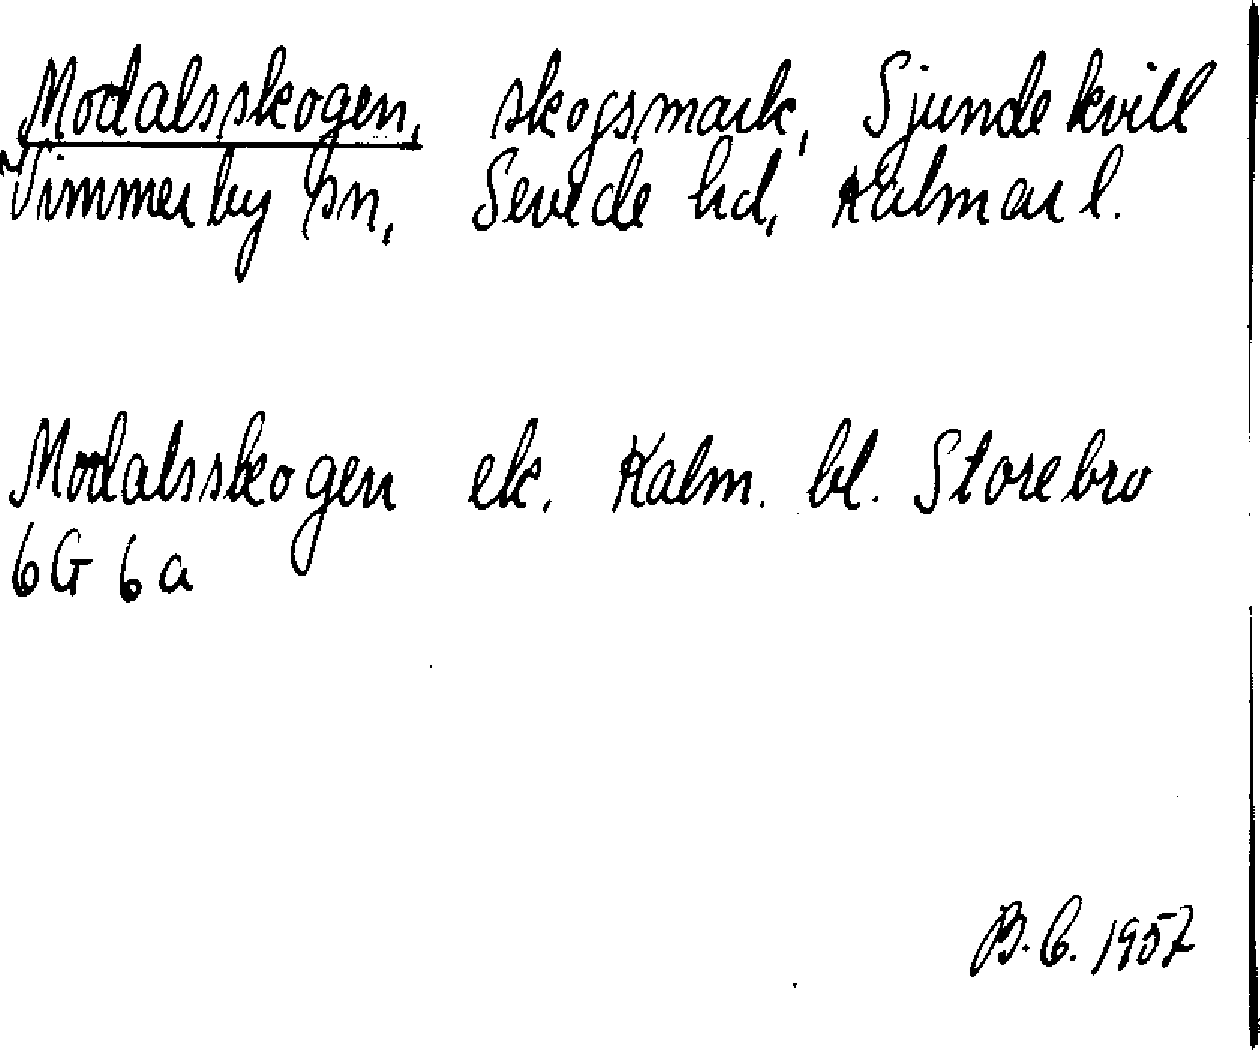 Modalsskogen, skogsmark, Sjundekvill
Vimmerby sn, Sevede hd, Kalmar l.
Modalsskogen ek. Kalm. bl. Storebro
6G 6a
B.C. 1957